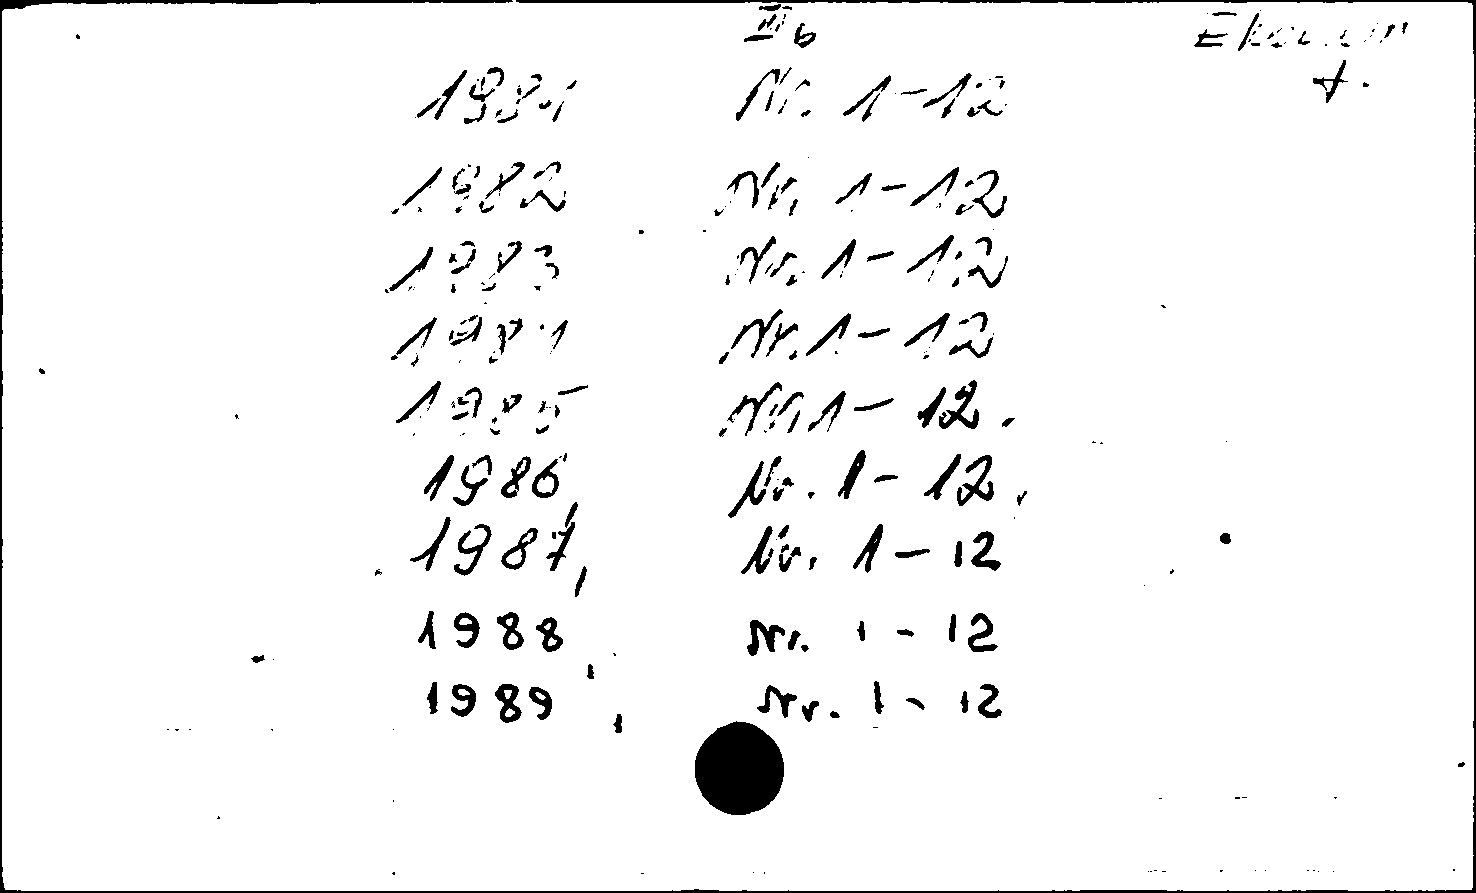 III b
1981 Nr. 1-12
1982 Nr. 1-12
1983 Nr. 1-12
1984 Nr. 1-12
1985 Nr. 1-12.
1986, Nr. 1-12,
1987, Nr. 1-12
1988, Nr. 1-12
1989, Nr. 1-12